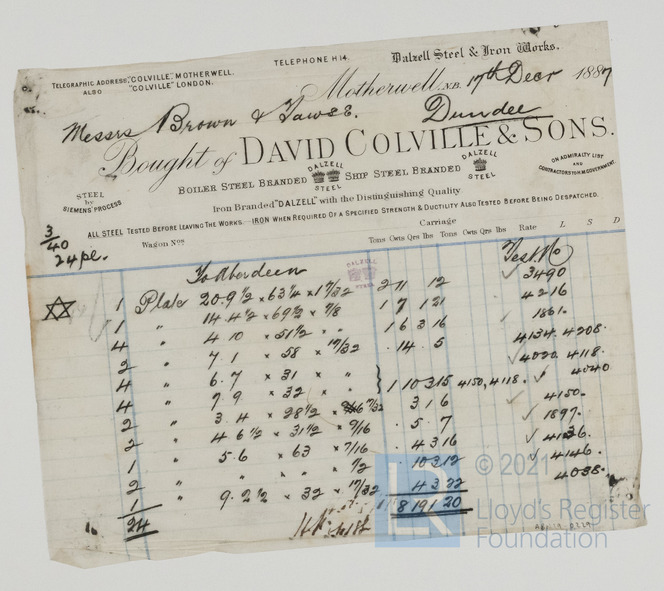 TELEPHONE H14.
Dalzell Steel & Iron Works.
TELEGRAPHIC ADDRESS, "COLVILLE", MOTHERWELL.
ALSO "COLVILLE" LONDON.
Motherwell, N.B. 17th Decr 1887
Messrs Brown & Tawse. Dundee
Bought of DAVID COLVILLE & SONS.
STEEL by SIEMENS' PROCESS
BOILER STEEL BRANDED DALZELL STEEL SHIP STEEL BRANDED DALZELL STEEL
ON ADMIRALTY LIST AND CONTRACTORS TO H.M. GOVERNMENT.
Iron Branded "DALZELL" with the Distinguishing Quality.
ALL STEEL TESTED BEFORE LEAVING THE WORKS. IRON WHEN REQUIRED OF A SPECIFIED STRENGTH & DUCTILITY ALSO TESTED BEFORE BEING DESPATCHED.
3/40
24 pl.
Wagon Nos
Carriage
Tons Cwts Qrs lbs Tons Cwts Qrs lbs Rate L S D
To Aberdeen
Test No
DALZELL STEEL
1 Plate 20.9 1/2 × 63 1/4 × 17/32 2 11 12 3490
1 " 14.4 1/2 × 69 1/2 × 7/8 1 7 1 21 4216
4 " 4 10 × 51 1/2 × " 1 6 3 16 1861.
2 " 7.1 × 58 × 17/32 . 14 . 5 4134. 4208.
4 " 6.7 × 31 × " 4020. 4118.
4 " 7.9 × 32 × " 1 10 3 15 4150, 4118. 4040
2 " 3.4 × 28 1/2 × 7/32 3 1 6 4150.
2 " 4 6 1/2 × 31 1/2 × 9/16 . 5 . 7 1897.
1 " 5.6 × 63 × 7/16 . 4 3 16 4136.
2 " " " × 1/2 . 10 3 12 4146.
1 " 9.2 1/2 × 32 × 17/32 4 3 22 4038.
24 8 19 1 20
© 2021
Lloyd's Register
Foundation
LR